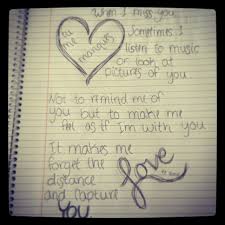 When I miss you
Sometimes I
listen to music
or look at
pictures of you
tu
me
manques
Not to remind me of
you but to make me
feel as if I'm with you
It makes me
forget the
distance
and capture
You
Love